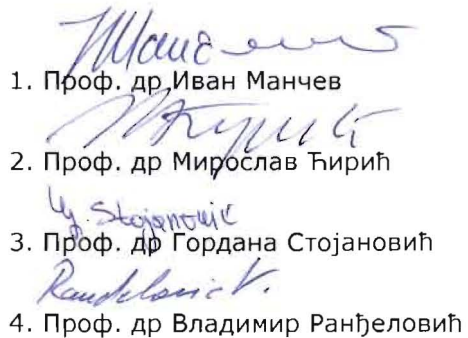 1. Проф. др Иван Манчев
2. Проф. др Мирослав Ћирић
Stojanović
3. Проф. др Гордана Стојановић
Ranđelović V.
4. Проф. др Владимир Ранђеловић